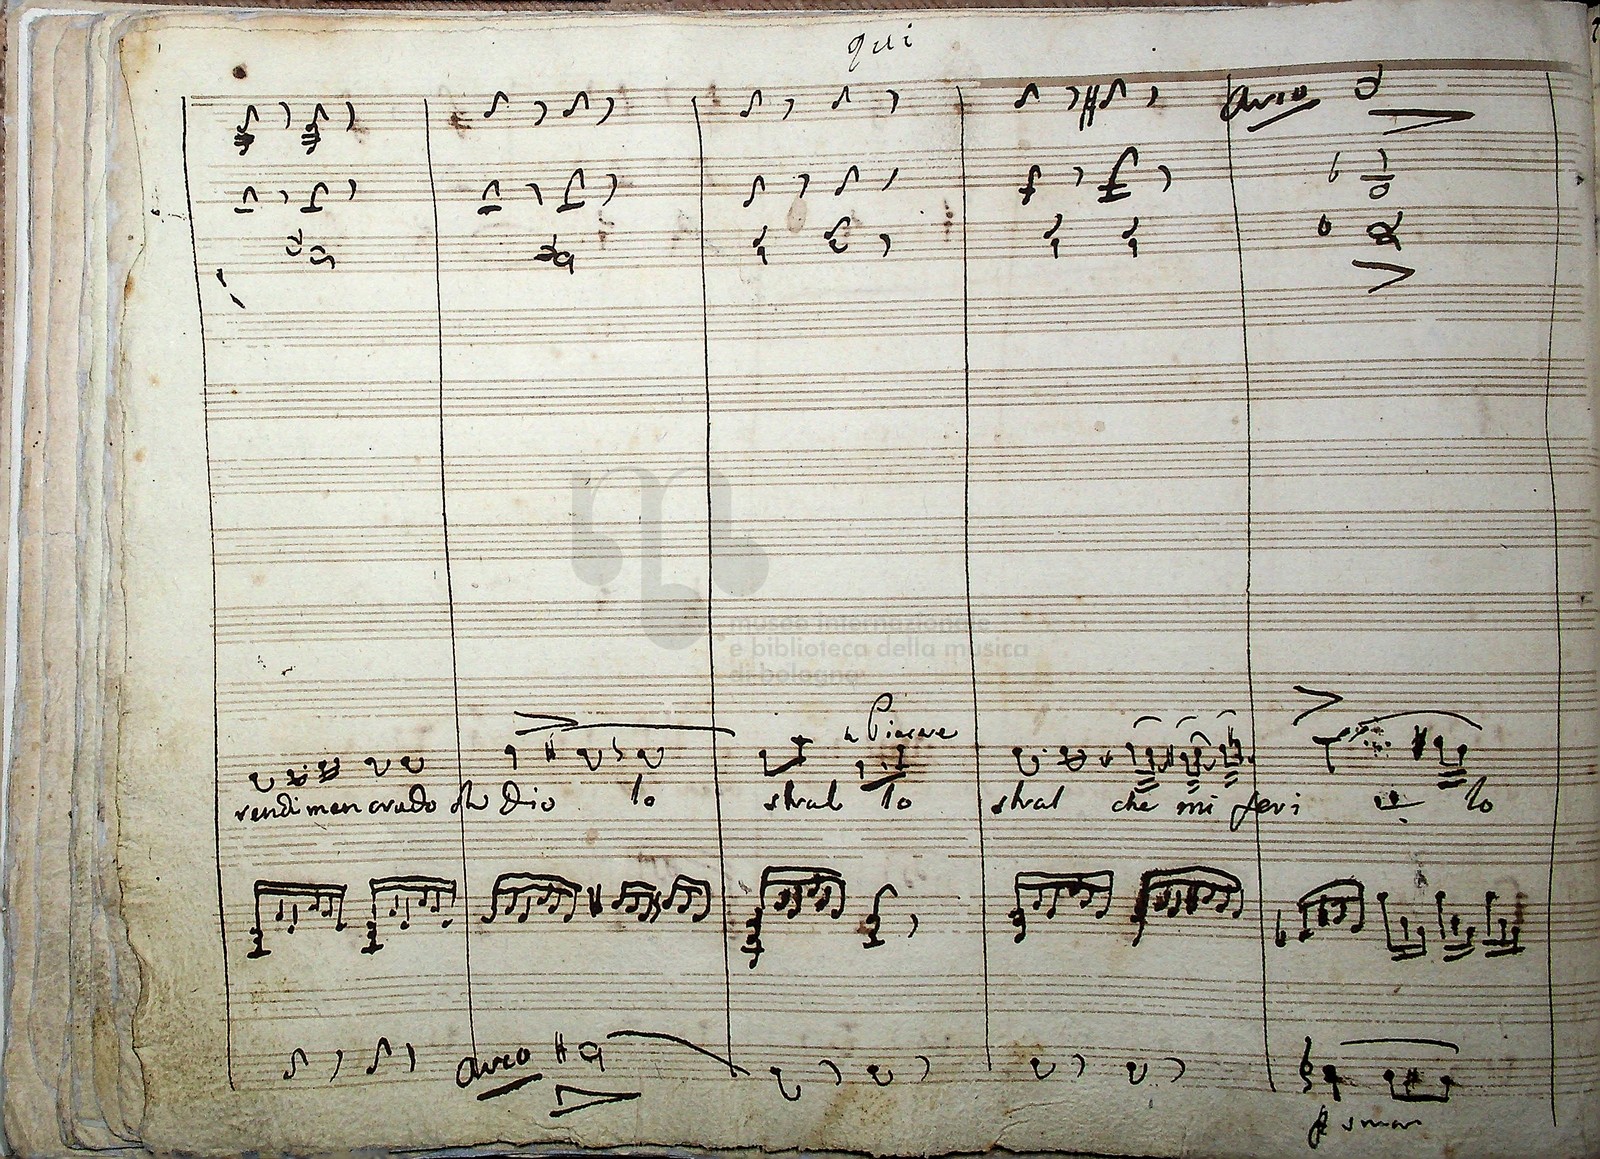 qui
arco
museo internazionale
e biblioteca della musica
di bologna
a Piacere
rendi men crudo oh Dio lo stral lo stral che mi ferì e lo
arco
smor